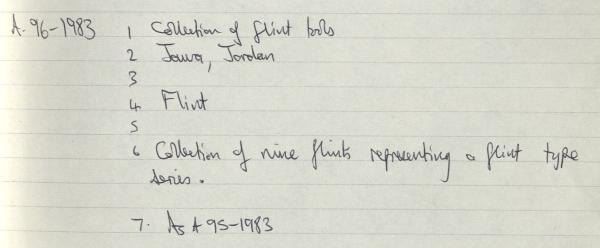 A. 96-1983 1 Collection of flint tools
2 Jawa, Jordan
3
4 Flint
5
6 Collection of nine flints representing a flint type
series.
7. As A 95-1983